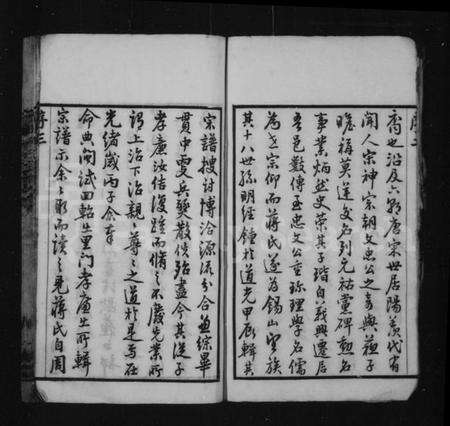 序二
裔也沿及六朝唐宋世居陽羨代有
聞人宗神宗朝文忠公之奇與蘇子
瞻稱莫逆交名列元祐黨碑勳名
事業炳然史策其子瑎自義興遷居
吾邑數傳至忠文公重珍理學名儒
為世宗仰而蔣氏遂為錫山望族
其十八世孫明經鍾於道光甲辰輯其
宗譜搜討博洽源流分合兼綜畢
貫中更兵燹散佚殆盡今其從子
孝廉汝倍復踵而脩之不廢先業所
謂上治下治親親尊尊之道於是焉在
光緒歲丙子余奉
命典閩試回軺里門孝廉出所輯
宗譜示余余受而讀之見蔣氏自周
序三